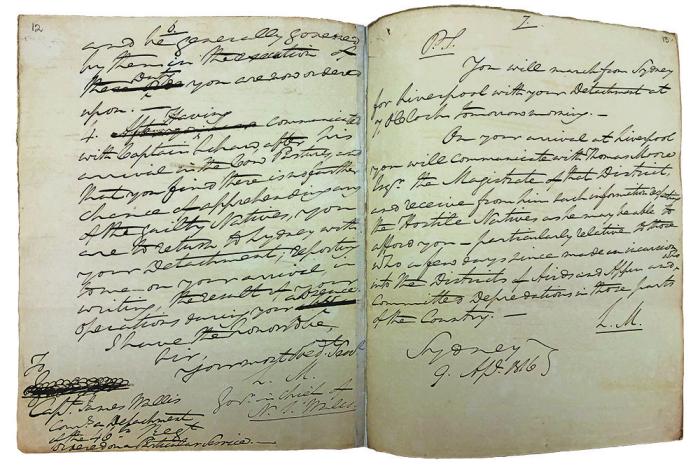 12
and be generally governed
by them in the execution of
the Duty you are now ordered
upon. —
4. Having communicated
with Captain Schaw after his
arrival in the Cow Pastures, and
that you find there is no further
chance of apprehending any
of the guilty Natives, you
are to return to Sydney with
your Detachment; reporting
to me on your arrival, in
writing, the result of your
operations during your absence
I have the honor to be,
Sir,
Your most Obed. Serv.
L. M.
Gov. in Chief of
N. S. Wales.
To
Capt. James Wallis
Comg. a Detachment
of the 46th Regt.
ordered on a Particular Service. —
7
13
P.S.
You will march from Sydney
for Liverpool with your Detachment at
7, OClock tomorrow morning. —
On your arrival at Liverpool
you will communicate with Thomas Moore
Esqr. the Magistrate of that District,
and receive from him such information respecting
the Hostile Natives as he may be able to
afford you — particularly relative to those
who a few days since made an incursion
into the Districts of Airds and Appin and who
committed Depredations in those parts
of the Country. —
L. M.
Sydney
9. Apl. 1816